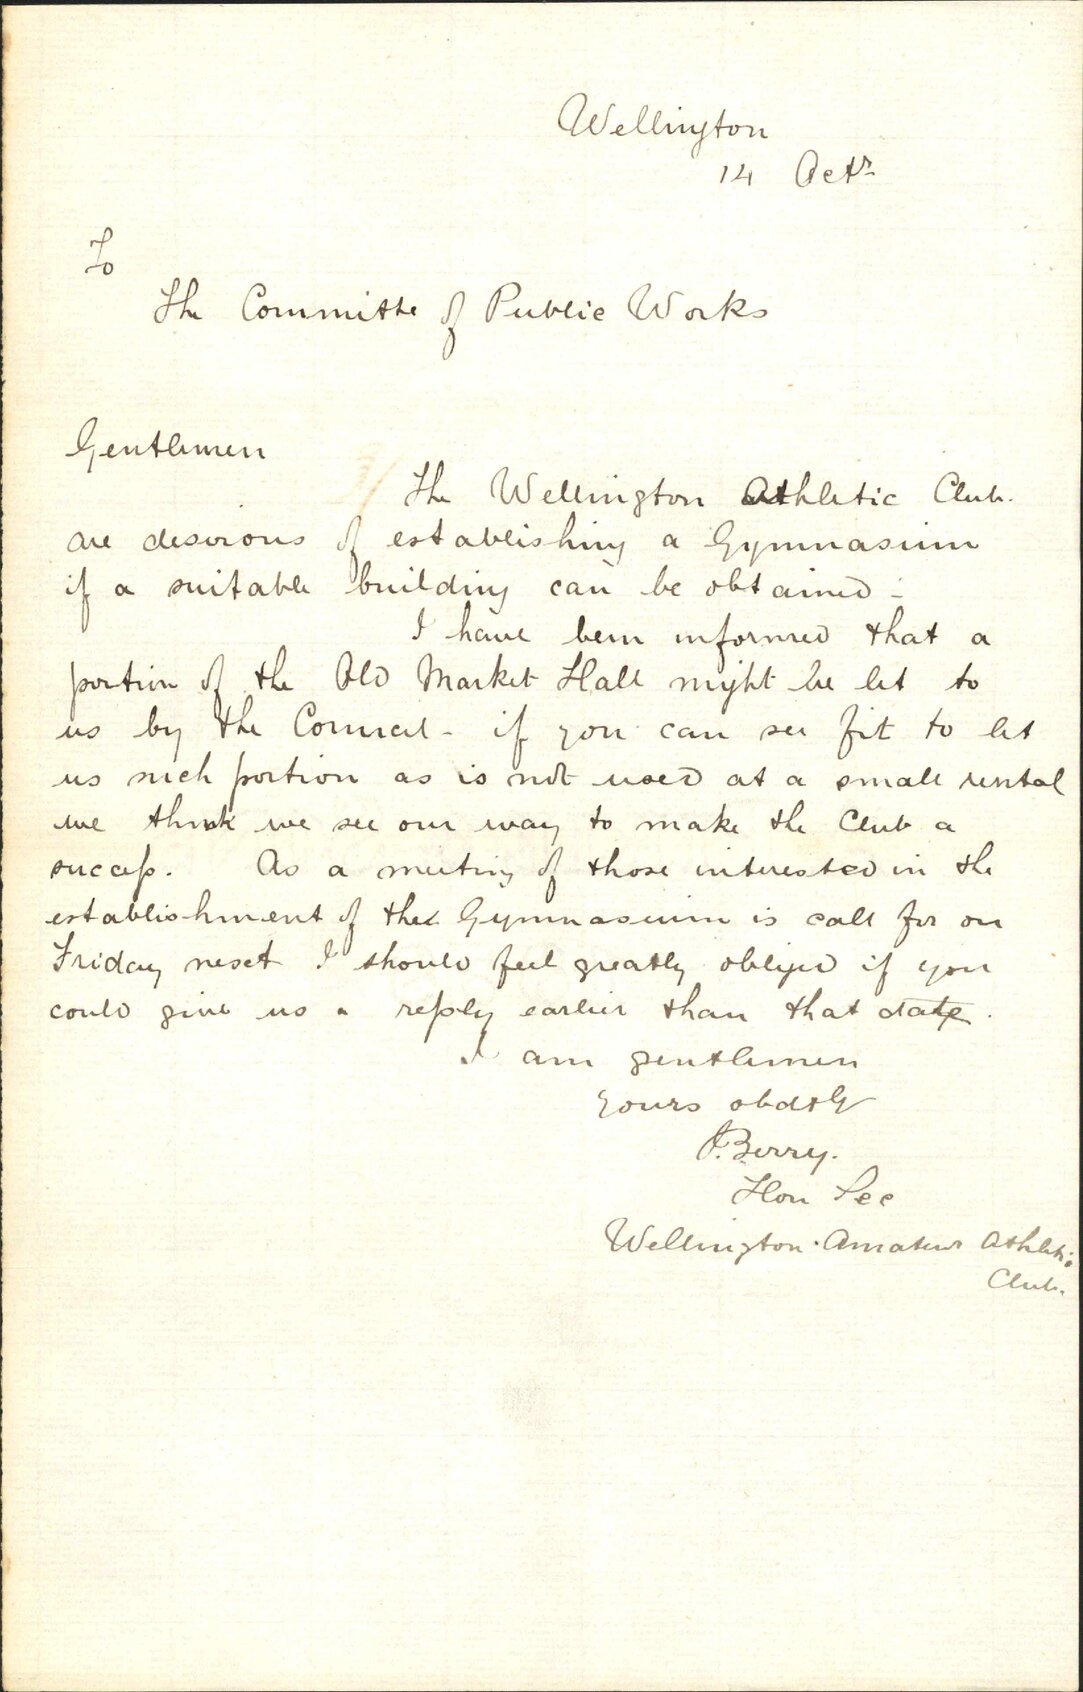 Wellington
14 Octr
To
The Committe of Public Works
Gentlemen
The Wellington Athletic Club.
are desirous of establishing a Gymnasium
if a suitable building can be obtained -
I have been informed that a
portion of the Old Market Hall might be let to
us by the Council - if you can see fit to let
us such portion as is not used at a small rental
we think we see our way to make the Club a
success. As a meeting of those interested in the
establishment of the Gymnasium is call for on
Friday next I should feel greatly obliged if you
could give us a reply earlier than that date.
I am gentlemen
yours obdtly
J. Berry.
Hon Sec
Wellington Amateur Athletic
Club.